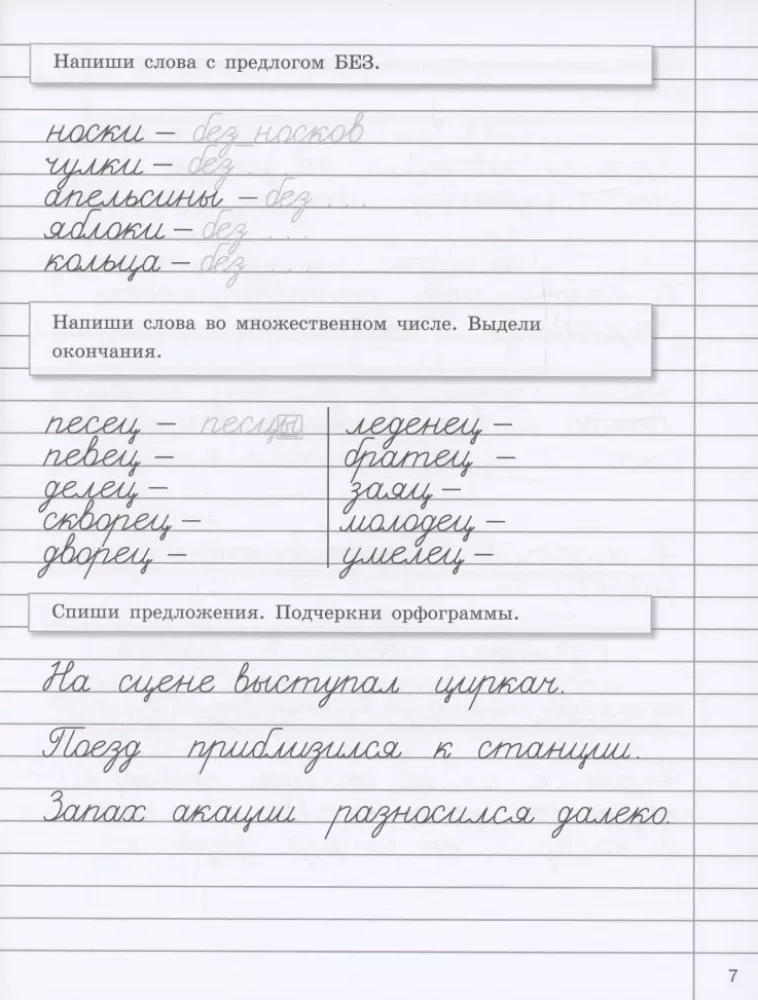 Напиши слова с предлогом БЕЗ.
носки — без носков
чулки — без ...
апельсины — без ...
яблоки — без ...
кольца — без ...
Напиши слова во множественном числе. Выдели
окончания.
песец — песцы
певец —
делец —
скворец —
дворец —
леденец —
братец —
заяц —
молодец —
умелец —
Спиши предложения. Подчеркни орфограммы.
На сцене выступал циркач.
Поезд приблизился к станции.
Запах акации разносился далеко.
7